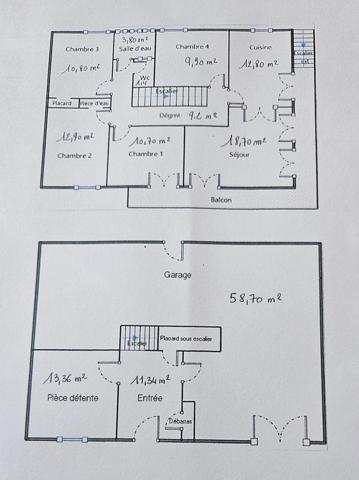 3,80 m²
Chambre 3
Salle d'eau
Chambre 4
Cuisine
10,80 m²
9,90 m²
12,80 m²
Escalier
ext
Wc
1,4
Escalier
Placard
Pièce d'eau
Dégmt
9,2 m²
12,90 m²
10,70 m²
18,70 m²
Chambre 2
Chambre 1
Séjour
Balcon
Garage
58,70 m²
Escalier
Placard sous escalier
13,36 m²
11,34 m²
Pièce détente
Entrée
Débarras